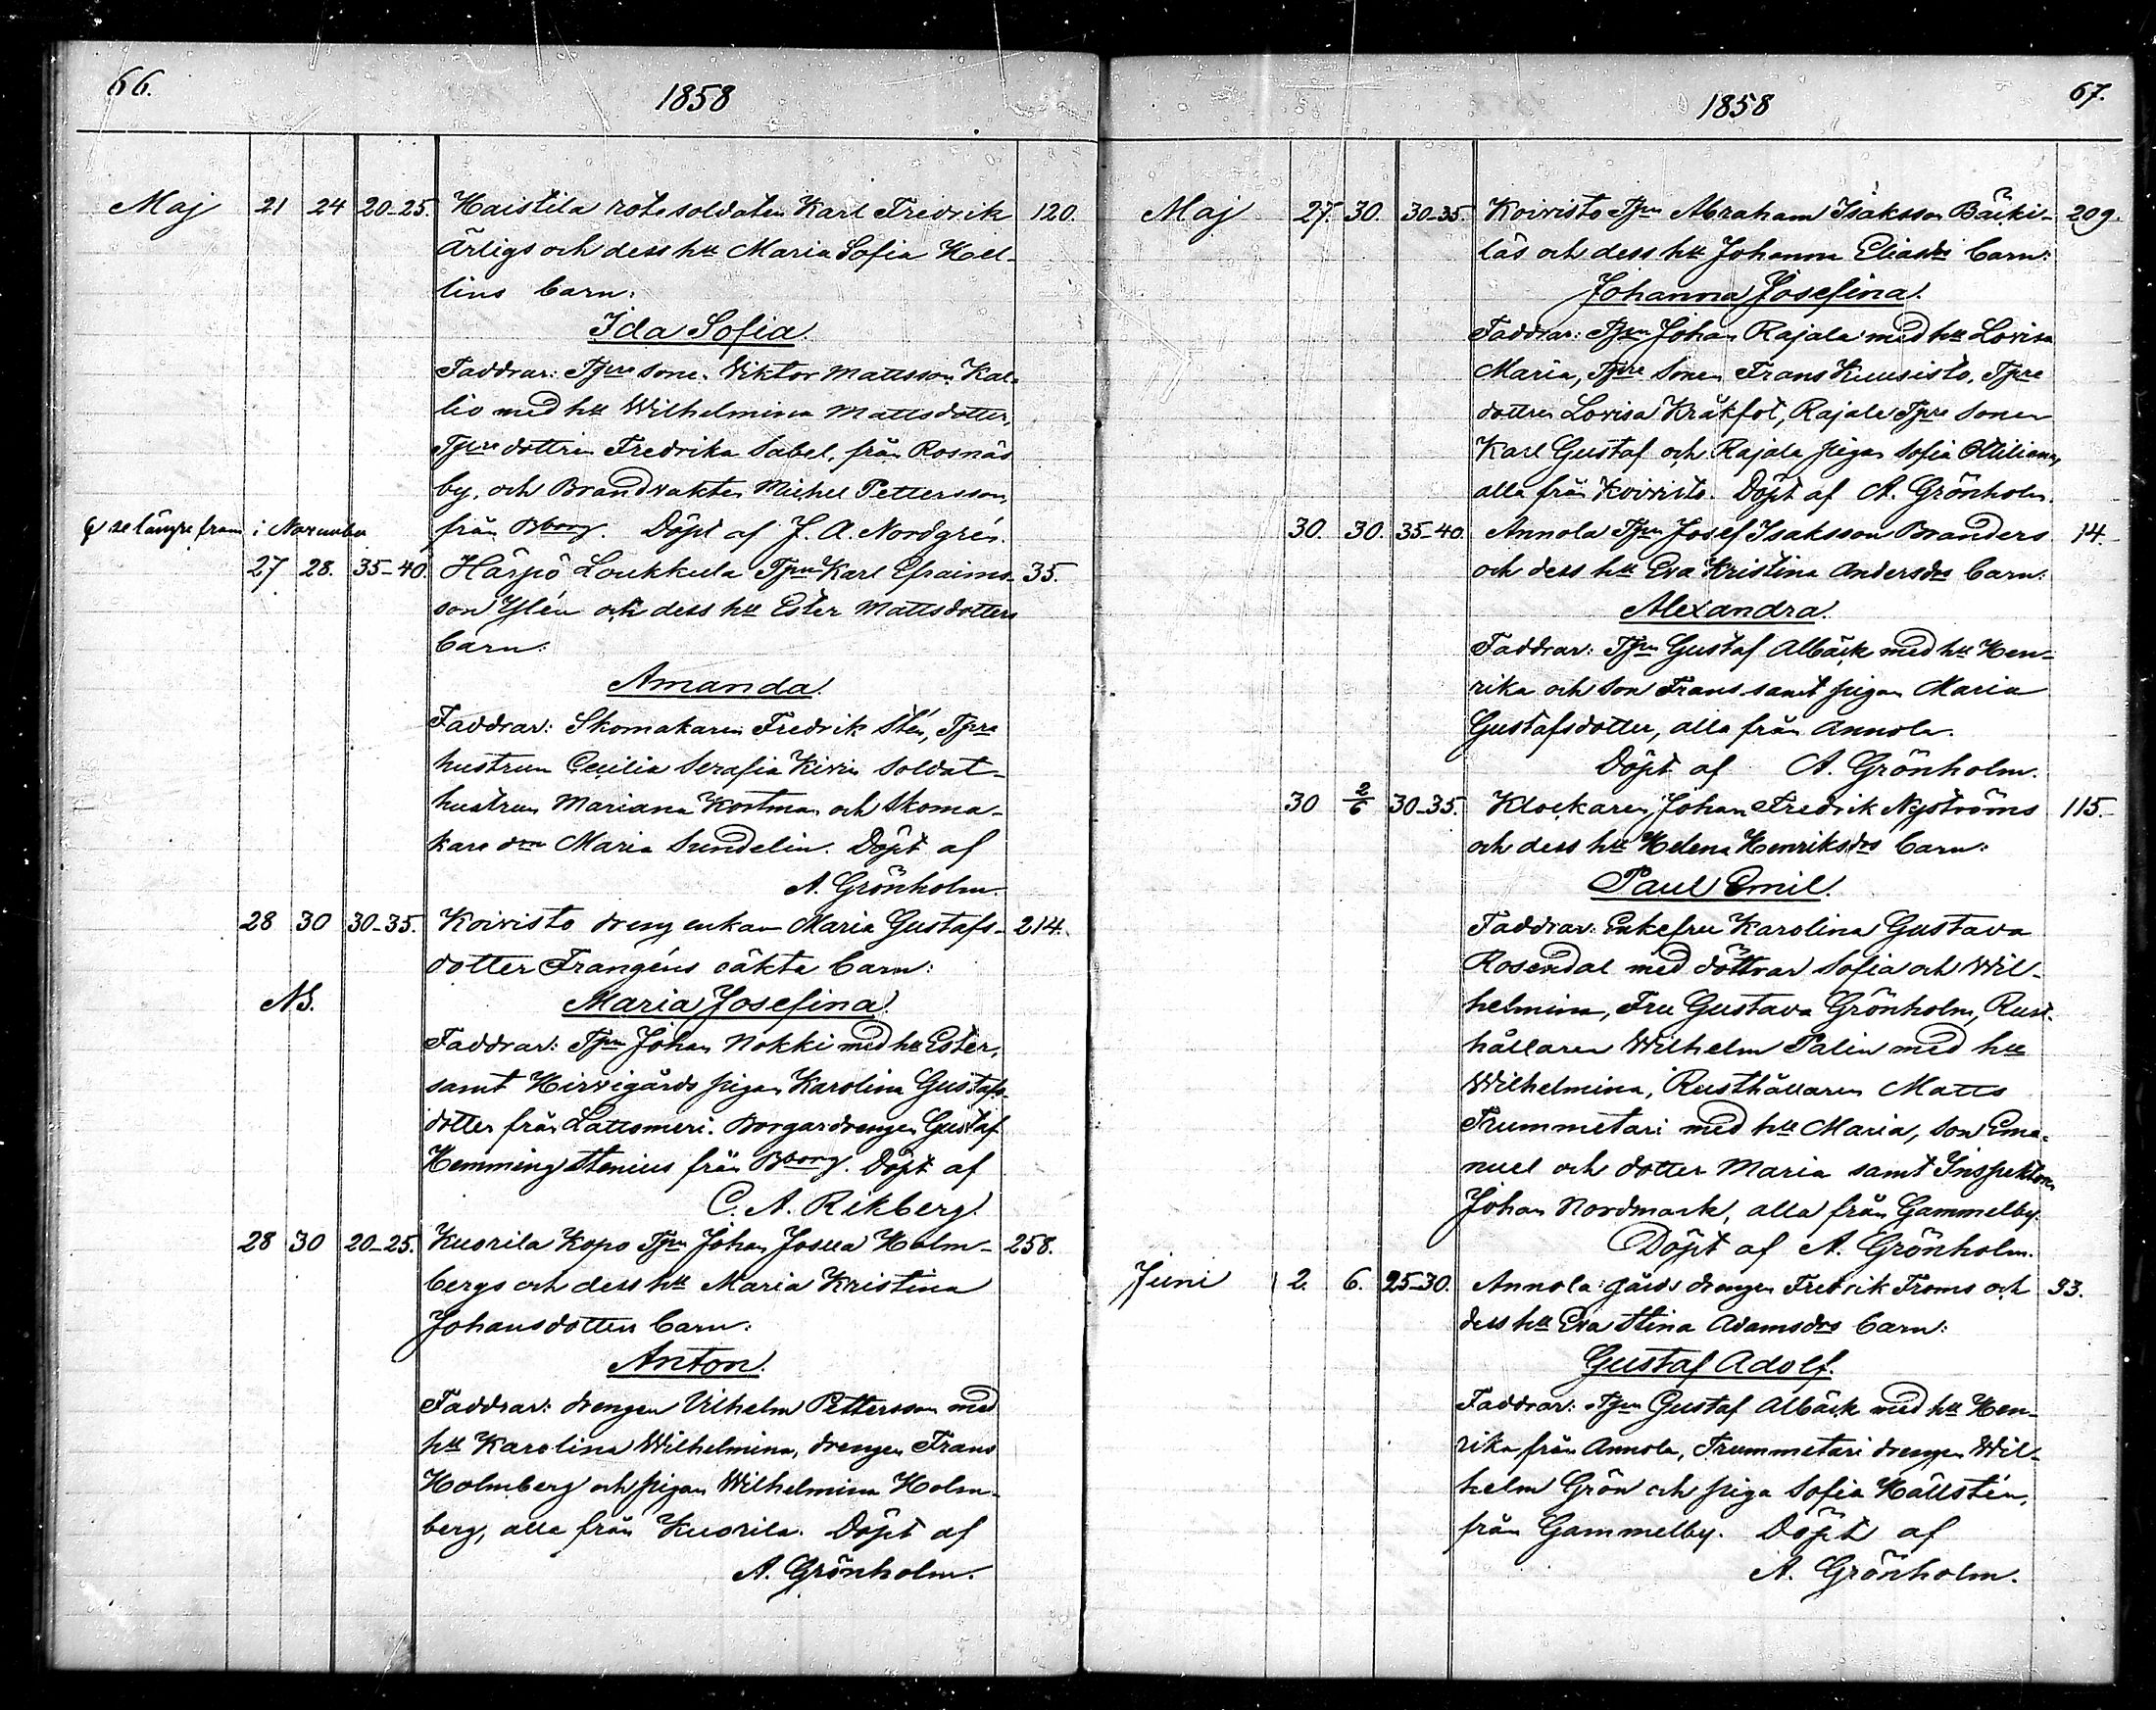 66.
1858
Maj 21 24 20-25. Haistila rotesoldaten Karl Fredrik 120.
Ärligs och dess h:u Maria Sofia Hel-
lins barn:
Ida Sofia.
Faddrar: Tjpre sone. Viktor Mattsson Kal-
lio med h:u Wilhelmina Mattsdotter,
Tjpre dottren Fredrika Sabel, från Rosnäs
by, och Brandvakten Michel Pettersson,
från Bborg. Döpt af J. A. Nordgrén.
se längre fram i November
27 28. 35-40. Härpö Loukkula Tjpn Karl Efraims- 35.
son Ylén och dess h:u Ester Mattsdotters
barn:
Amanda.
Faddrar: Skomakaren Fredrik Stén, Tjpre
hustrun Cecilia Serafia Kivi, Soldat-
hustrun Mariana Kortman och Skoma-
kare drn Maria Sundelin. Döpt af
A. Grönholm.
28 30 30-35. Koivisto dreng enkan Maria Gustafs- 214.
dotter Frangéns oäkta barn:
NB. Maria Josefina.
Faddrar: Tjpn Johan Nokki med h:u Ester,
samt Hirvigårds pigan Karolina Gustafs-
dotter från Lattomeri. Borgardrengen Gustaf
Hemming Stenius från Bborg. Döpt af
C. A. Rikberg.
28 30 20-25. Kuorila Kopo Tjpn Johan Josua Holm- 258.
bergs och dess h:u Maria Kristina
Johansdotters barn:
Anton.
Faddrar: drengen Vilhelm Pettersson med
h:u Karolina Wilhelmina, drengen Frans
Holmberg och pigan Wilhelmina Holm-
berg, alla från Kuorila. Döpt af
A. Grönholm.
67.
1858
Maj 27. 30. 30-35. Koivisto Tjpn Abraham Isaksson Bäcki- 209.
läs och dess h:u Johanna Eliasdrs barn:
Johanna Josefina.
Faddrar: Tjpn Johan Rajala med h:u Lovisa
Maria, Tjpre Sonen Frans Kuusisto, Tjpre
dottren Lovisa Kråkfot, Rajala Tjpre Sonen
Karl Gustaf och Rajala pigan Sofia Ottiliana,
alla från Koivisto. Döpt af A. Grönholm.
30. 30. 35-40. Annola Tjpn Josef Isaksson Branders 14.
och dess h:u Eva Kristina Andersdrs barn:
Alexandra.
Faddrar: Tjpn Gustaf Albäck med h:u Hen-
rika och Son Frans samt pigan Maria
Gustafsdotter, alla från Annola.
Döpt af A. Grönholm.
30 2/6 30-35. Klockaren Johan Fredrik Nyströms 115.
och dess h:u Helena Henriksdrs barn:
Paul Emil.
Faddrar: Enkefru Karolina Gustava
Rosendal med döttrar Sofia och Wil-
helmina, Fru Gustava Grönholm, Rust-
hållaren Wilhelm Palin med h:u
Wilhelmina, Rusthållaren Matts
Trummetari med h:u Maria, Son Ema-
nuel och dotter Maria samt Inspektoren
Johan Nordmark, alla från Gammelby.
Döpt af A. Grönholm.
Juni 2. 6. 25-30. Annola gårds drengen Fredrik Froms och 33.
dess h:u Eva Stina Adamsdrs barn:
Gustaf Adolf.
Faddrar: Tjpn Gustaf Albäck med h:u Hen-
rika från Annola, Trummetari drengen Wil-
helm Grön och piga Sofia Hällstén,
från Gammelby. Döpt af
A. Grönholm.